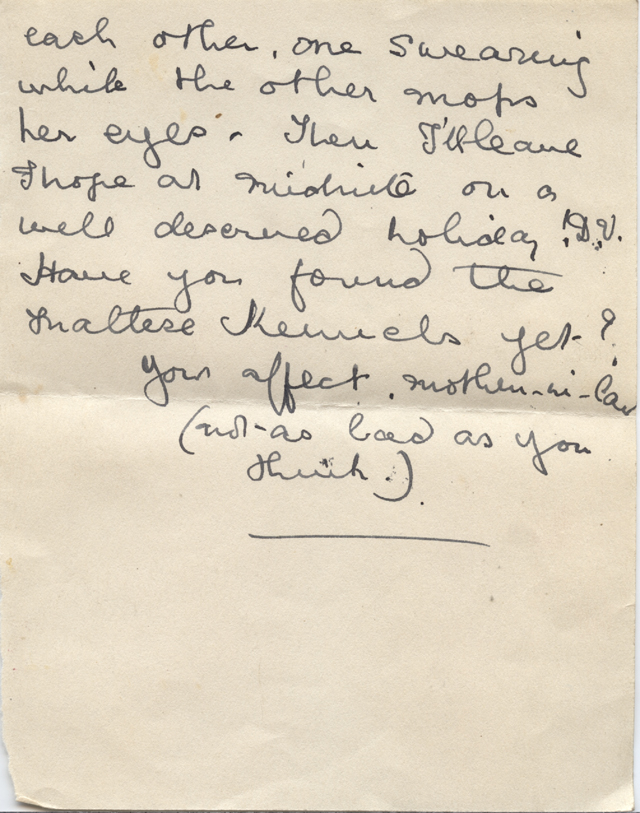 each other, one swearing
while the other mops
her eyes. Then I'll leave
I hope at midnite on a
well deserved holiday! D.V.
Have you found the
Maltese Kennels yet?
Your affect. mother-in-law
(not as bad as you
think.).